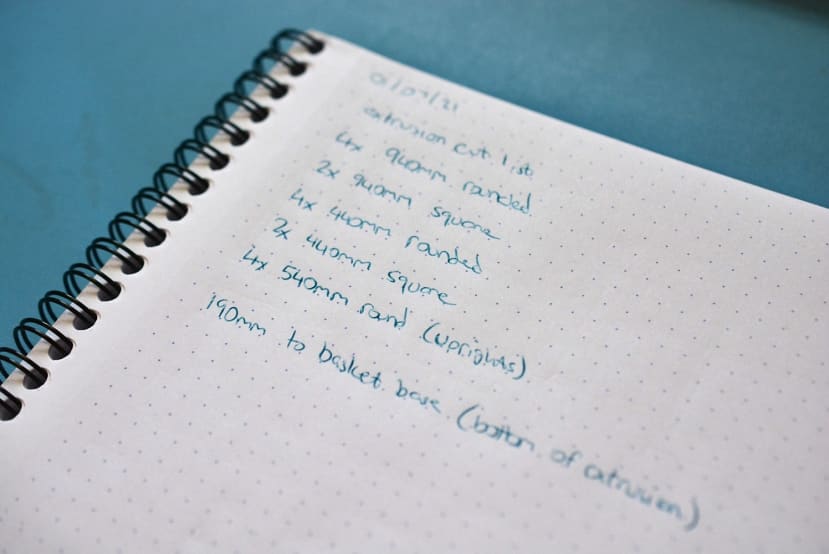 01/07/21
extrusion cut list
4x 940mm rounded
2x 940mm square
4x 440mm rounded
2x 440mm square
4x 540mm round (uprights)
190mm to basket base (bottom of extrusion)